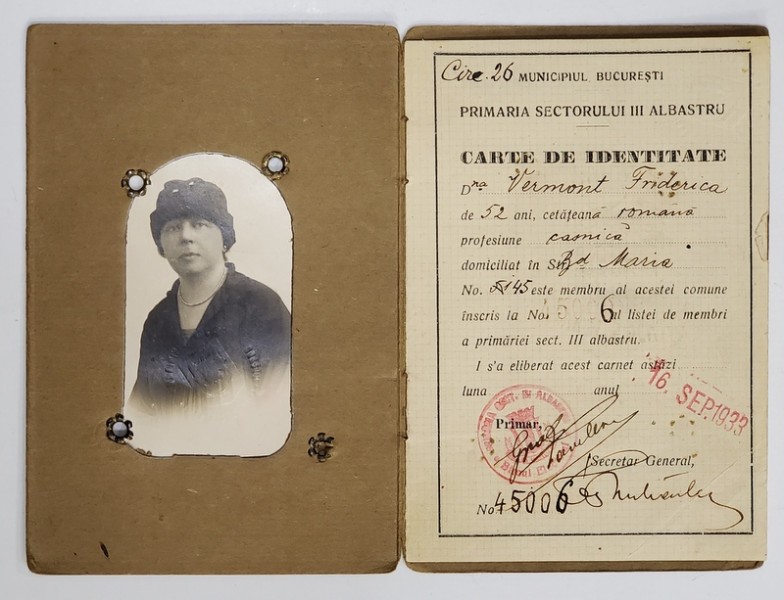 Circ. 26 MUNICIPIUL BUCUREȘTI
PRIMARIA SECTORULUI III ALBASTRU
CARTE DE IDENTITATE
Dna Vermont Friderica
de 52 ani, cetățeană română
profesiune casnică
domiciliat în Bd Maria
No. 145 este membru al acestei comune
înscris la No. 45006 al listei de membri
a primăriei sect. III albastru.
I s'a eliberat acest carnet astăzi
16. SEP. 1933
luna anul
Primar,
Secretar General,
No 45006